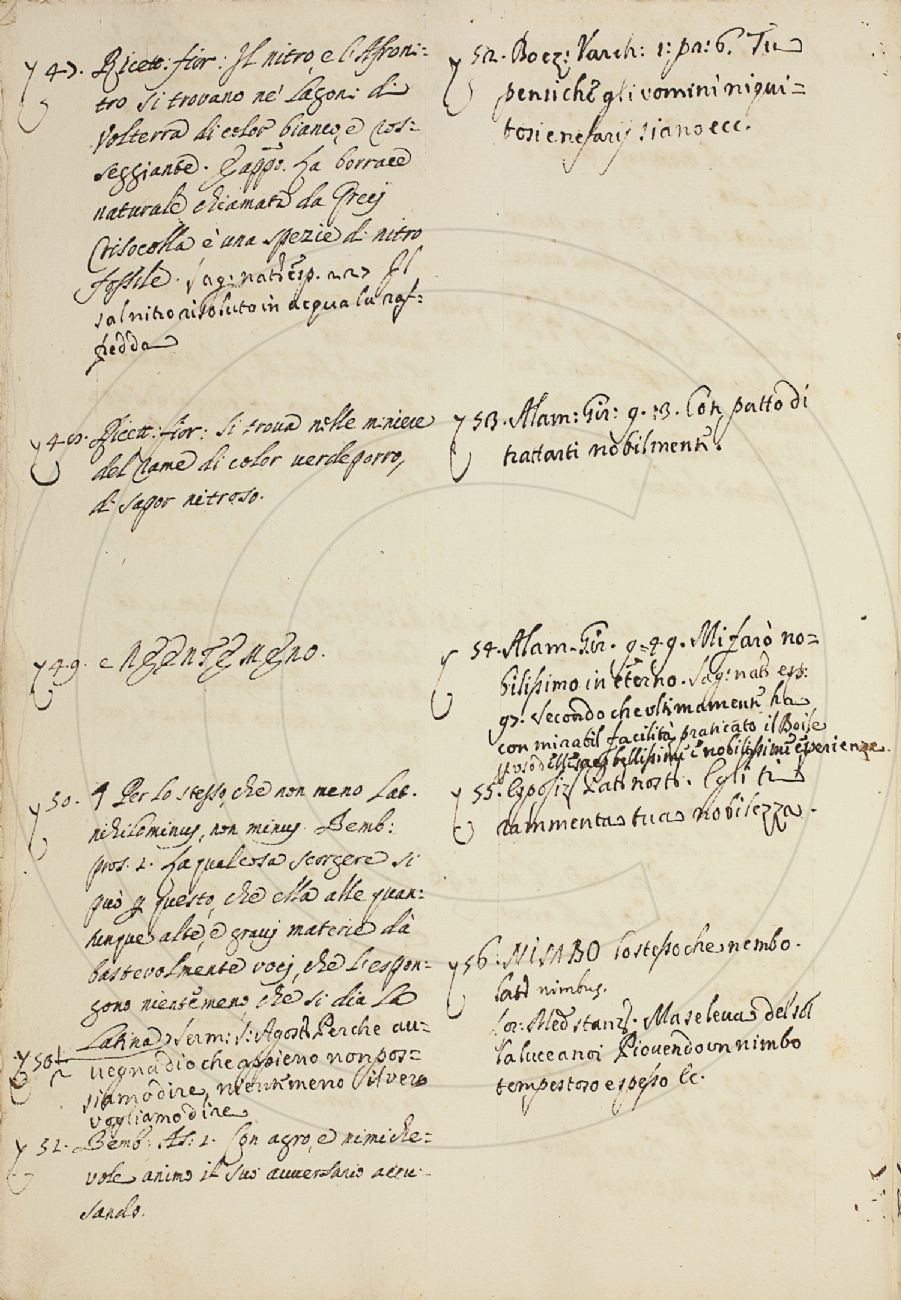 47. Ricett: fior: Il nitro, e l'Afroni=
tro si trovano ne' Lagoni di
Volterra di color bianco, e ros=
seggiante. E appo. La borrace
naturale chiamata da Greci
Crisocolla è una spezie di nitro
fossile. Sag: nat: esp. 227 Il
salnitro risoluto in acqua la raf=
fredda
48. Ricett: fior: Si trova nelle miniere
del Rame di color verdeporro,
di sapor nitroso.
49. e NEENTEMENO.
50. ¶ Per lo stesso, che non meno Lat.
nihilominus, non minus. Bemb:
pros. 1. La qual cosa scorgere si
può p questo, che ella alle quan=
tunque alte, e gravi materie dà
bastevolmente voci, che le espon=
gono nientemeno, che si dia La
Latina
50 Serm: S: Agost: Perche av=
vegnadioche appieno non pos=
siamo dire, nientemeno il vero
vogliamo dire
51. Bemb: As: 1. Con agro, e nimiche=
vole animo il suo avversario accu=
sando.
52. Boez: Varch: 1: pr: 6. Tu
pensi che gli uomini niqui=
tosi e nefarij siano ecc.
53. Alam: Gir: 9. 13. Con patto di
trattarti nobilmente.
54. Alam. Gir. 9. 49. Mi farò no=
bilissimo in eterno. Sag: nat: esp:
97. Secondo che ultimamente ha
con mirabil facilità praticato il Boile
bellissime e nobilissime esperienze.
55. Esposiz: Pat: nost: Egli ti
rammenta tua nobilezza.
56. NIMBO lo stesso che nembo.
lat: nimbus.
Lor: Med: stanz: Ma se leva del sol
la luce a noi Piovendo un nimbo
tempestoso e spesso &c.